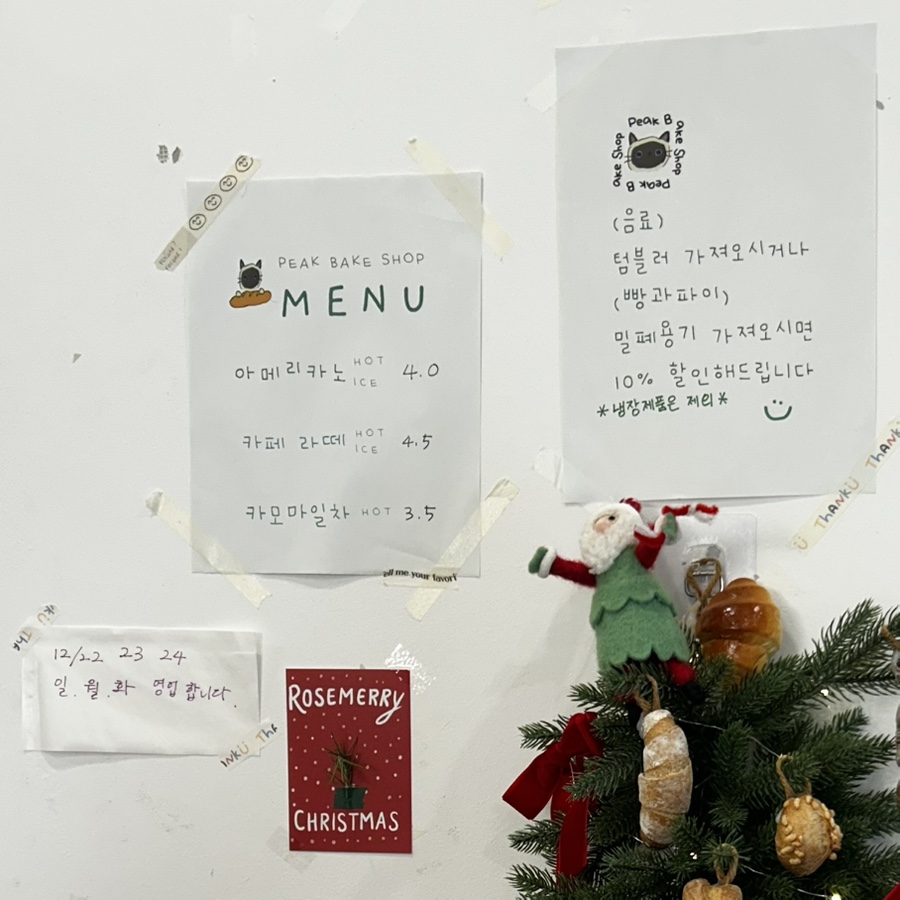 PEAK BAKE SHOP
MENU
아메리카노 HOT ICE 4.0
카페 라떼 HOT ICE 4.5
카모마일차 HOT 3.5
all me your favori
Peak Bake Shop
Peak Bake Shop
(음료)
텀블러 가져오시거나
(빵과파이)
밀폐용기 가져오시면
10% 할인해드립니다
*냉장제품은 제외*
ThANKÜ ThANK
12/22 23 24
일.월.화 영업합니다.
ROSEMERRY
CHRISTMAS